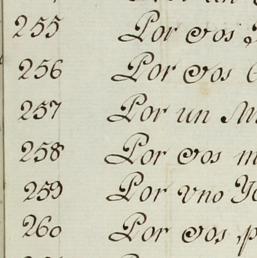 255 Por dos
256 Por dos
257 Por un
258 Por dos
259 Por vno
260 Por dos